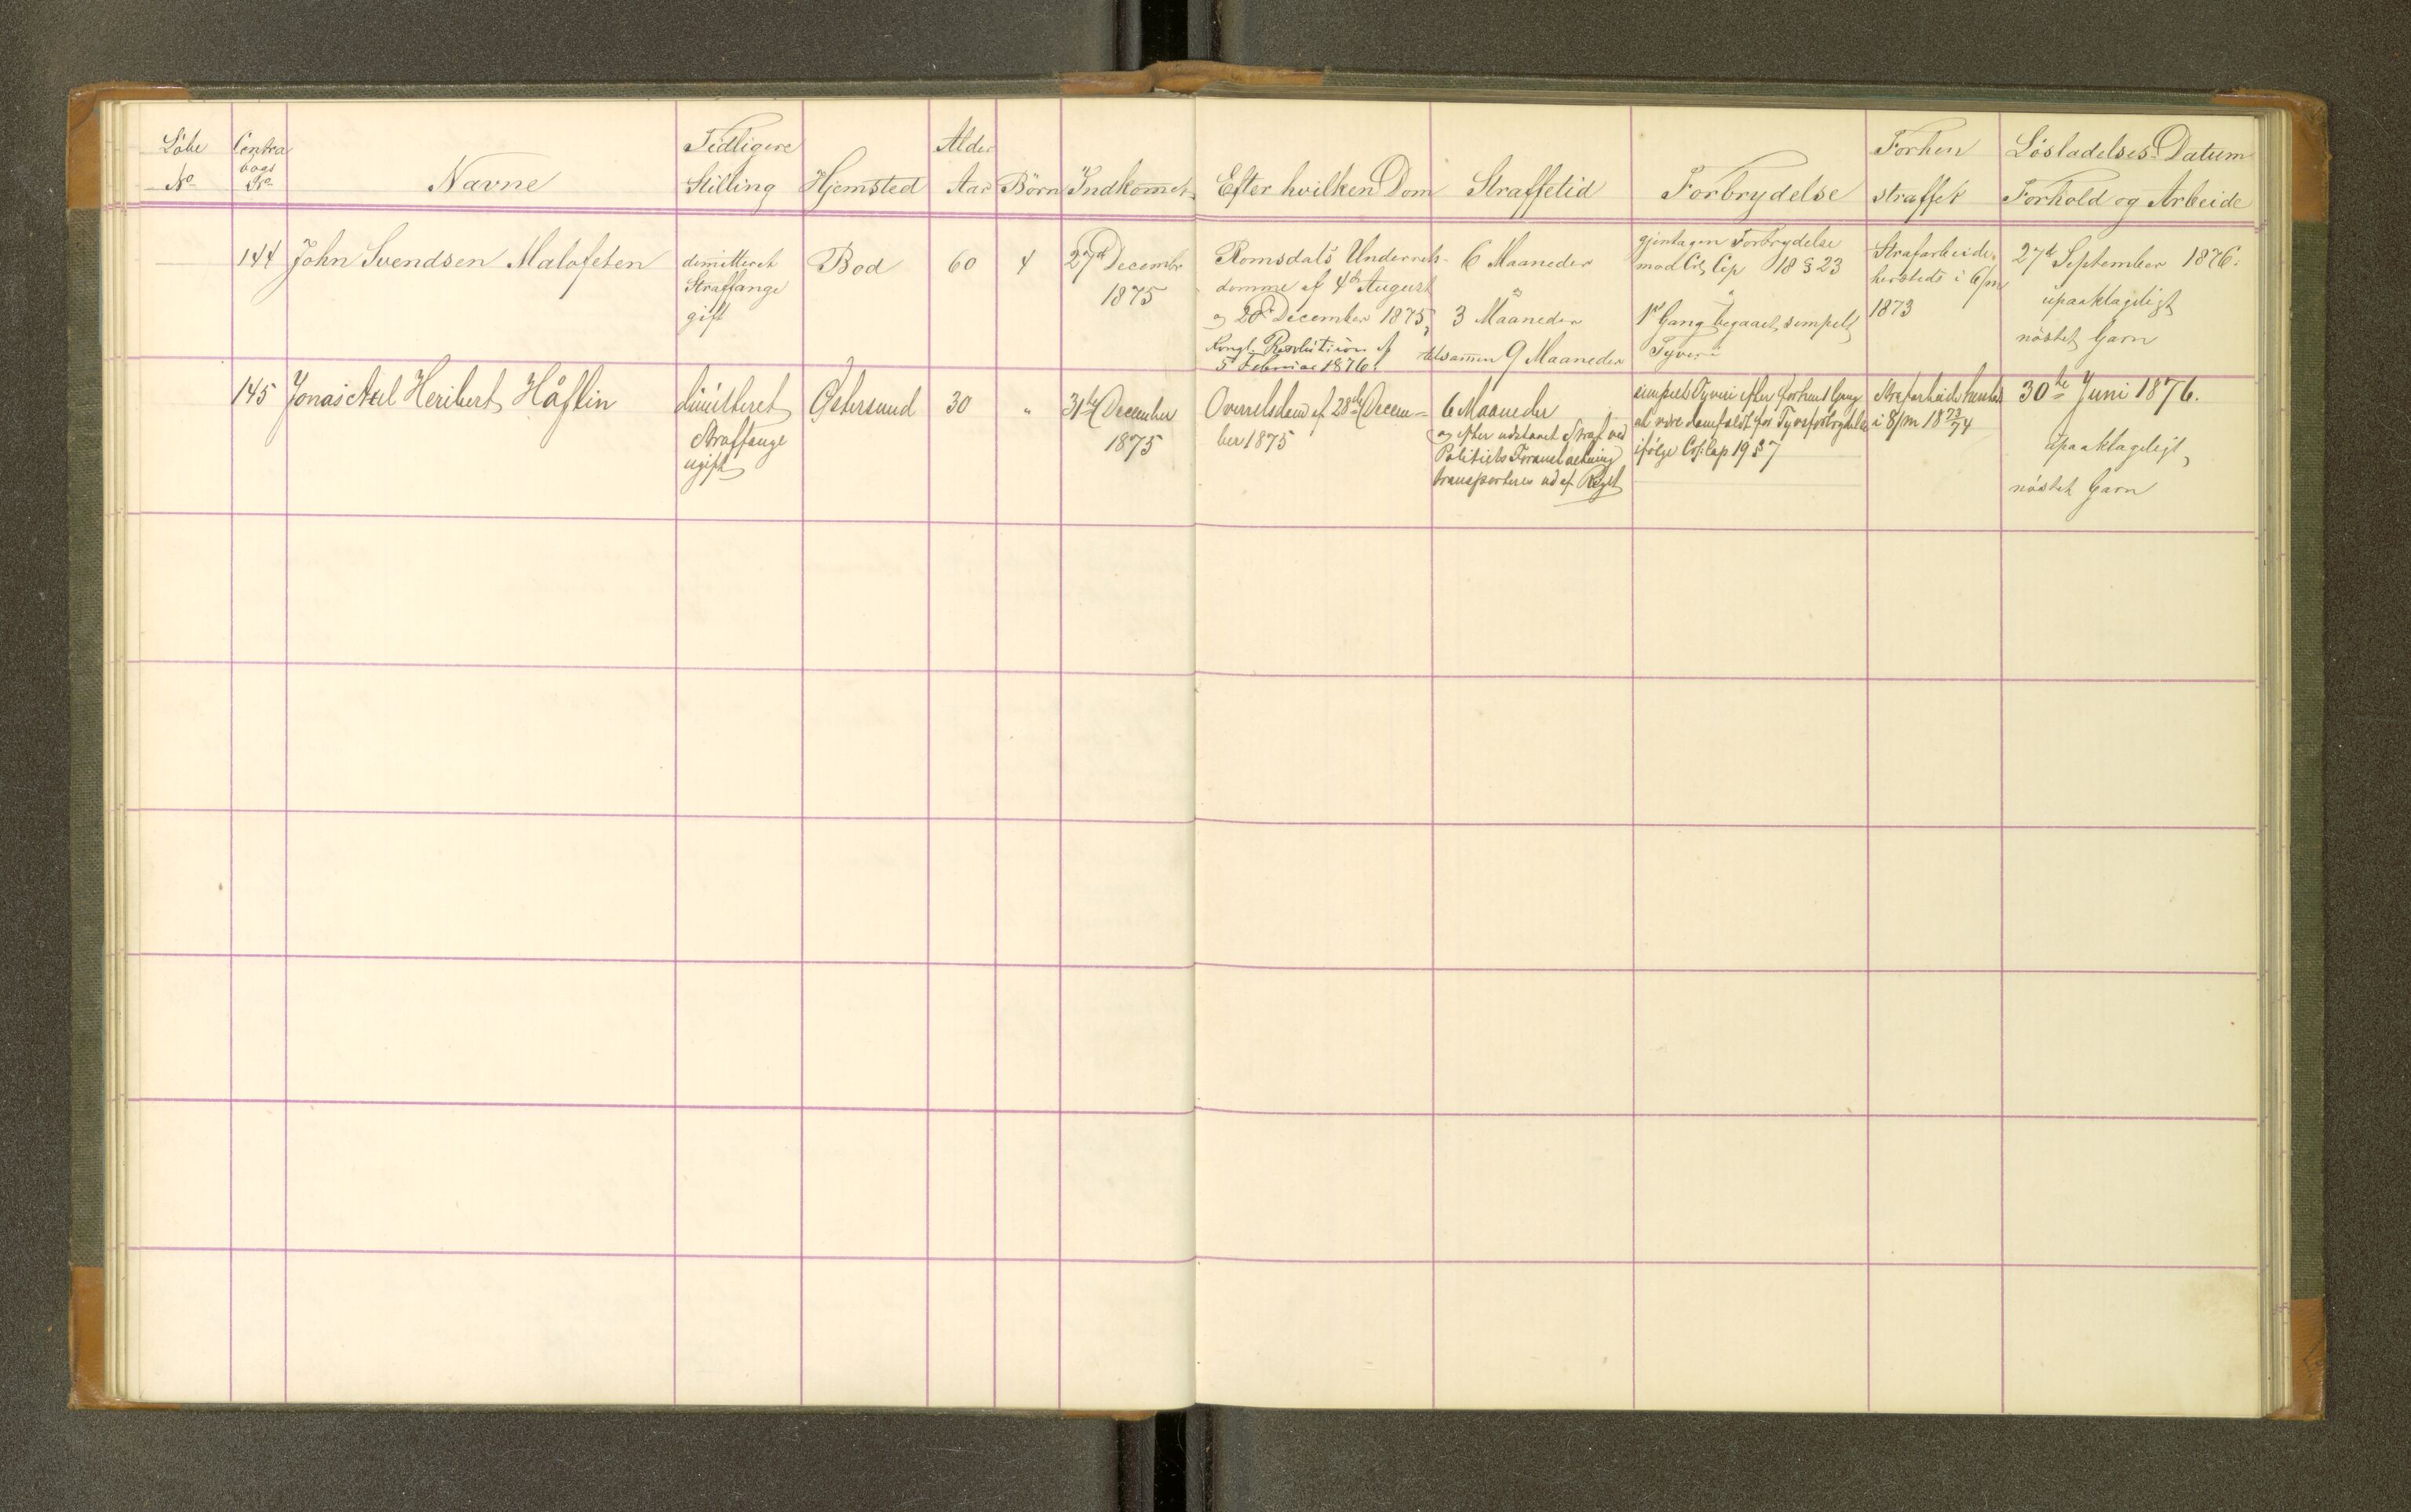 Löbe Contra Tidligere Alder Forhen Lösladelses Datum
No bogs No Navne Stilling Hjemsted Aar Börn Indkommet Efter hvilken Dom Straffetid Forbrydelse straffet Forhold og Arbeide
144 John Svendsen Malofeten
dimitteret
Straffange
gift
Bod
60
4
27de Decembr
1875
Romsdals Underrets-
domme af 4de August
og 20de December 1875,
Kongl. Resolution af
5te Februar 1876.
6 Maaneder
3 Maaneder
tilsammen 9 Maaneder
gjentagen Forbrydelse
mod Crl Cap 18 § 23
1ste Gang begaaet simpelt
Tyveri
Strafarbeide
hersteds i 6/m
1873
27de September 1876.
upaaklageligt
nöstet Garn
145 Jonas Axel Heribert Håflin
dimitteret
Straffange
ugift
Östersund
30
"
31te December
1875
Overretsdom af 28de Decem-
ber 1875
6 Maaneder
og efter udstaaet Straf ved
Politiets Foranstaltning
transporteres ud af Riget
simpelt Tyveri efter forhen 1 Gang
at være domfældt for Tyvsforbrydelse
ifølge Crl: Cap 19 § 7
Strafarbeide hersteds
i 8/m 1873/74
30te Juni 1876.
upaaklageligt,
nöstet Garn